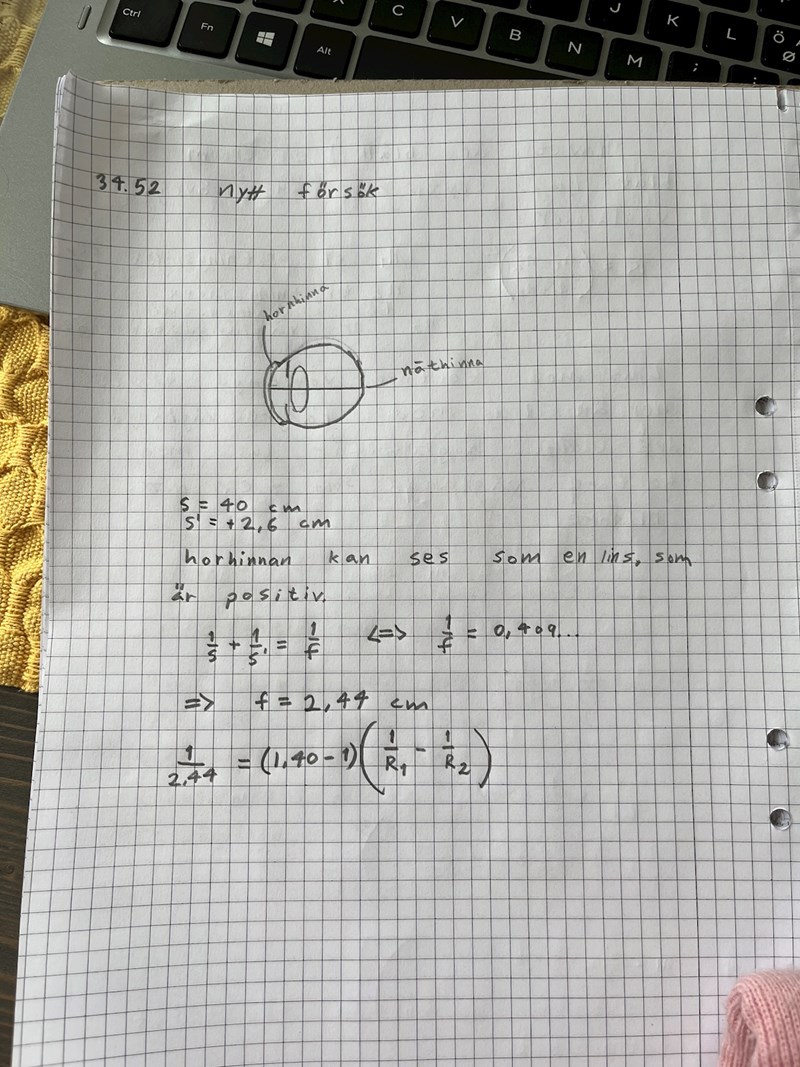 Ctrl
Fn
Alt
C
V
B
N
M
J
K
L
Ö
Ø
;
:
34.52 nytt försök
hornhinna
näthinna
s = 40 cm
s' = +2,6 cm
horhinnan kan ses som en lins, som
är positiv.
1/s + 1/s' = 1/f <=> 1/f = 0,409...
=> f = 2,44 cm
1/2,44 = (1,40 - 1)(1/R₁ - 1/R₂)